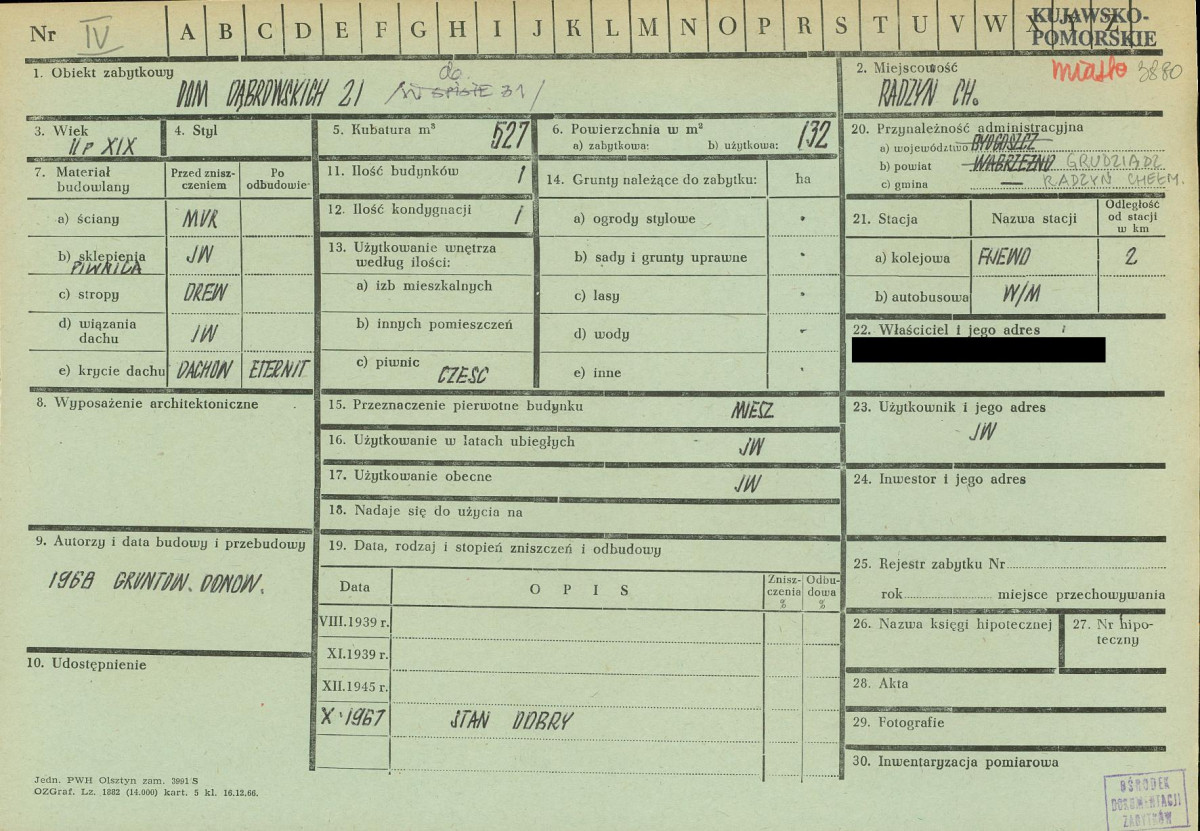 Nr IV A B C D E F G H I J K L M N O P R S T U V W X Y Z
KUJAWSKO-
POMORSKIE
1. Obiekt zabytkowy
DOM DĄBROWSKICH 21 /W SPISIE 31/
do
2. Miejscowość miasto 3880
RADZYN CH.
3. Wiek
II p XIX
4. Styl
5. Kubatura m³ 527
6. Powierzchnia w m²
a) zabytkowa: b) użytkowa: 132
20. Przynależność administracyjna
a) województwo BYDGOSZCZ
b) powiat WĄBRZEŹNO GRUDZIĄDZ
c) gmina — RADZYN CHEŁM.
7. Materiał
budowlany
Przed znisz-
czeniem
Po
odbudowie
a) ściany MUR
b) sklepienia JW
PIWNICA
c) stropy DREW
d) wiązania
dachu JW
e) krycie dachu DACHÓW ETERNIT
11. Ilość budynków 1
12. Ilość kondygnacji 1
13. Użytkowanie wnętrza
według ilości:
a) izb mieszkalnych
b) innych pomieszczeń
c) piwnic CZĘŚĆ
14. Grunty należące do zabytku: ha
a) ogrody stylowe
b) sady i grunty uprawne
c) lasy
d) wody
e) inne
21. Stacja Nazwa stacji
Odległość
od stacji
w km
a) kolejowa FIJEWO 2
b) autobusowa W/M
22. Właściciel i jego adres
8. Wyposażenie architektoniczne
15. Przeznaczenie pierwotne budynku MIESZ
16. Użytkowanie w latach ubiegłych JW
17. Użytkowanie obecne JW
18. Nadaje się do użycia na
23. Użytkownik i jego adres
JW
24. Inwestor i jego adres
9. Autorzy i data budowy i przebudowy
1968 GRUNTOW. ODNOW.
19. Data, rodzaj i stopień zniszczeń i odbudowy
Data O P I S
Znisz-
czenia
%
Odbu-
dowa
%
VIII.1939 r.
XI.1939 r.
XII.1945 r.
X · 1967 STAN DOBRY
25. Rejestr zabytku Nr
rok miejsce przechowywania
26. Nazwa księgi hipotecznej
27. Nr hipo-
teczny
10. Udostępnienie
28. Akta
29. Fotografie
30. Inwentaryzacja pomiarowa
Jedn. PWH Olsztyn zam. 3991/S
OZGraf. Lz. 1882 (14.000) kart. 5 kl. 16.12.66.
OŚRODEK
DOKUMENTACJI
ZABYTKÓW